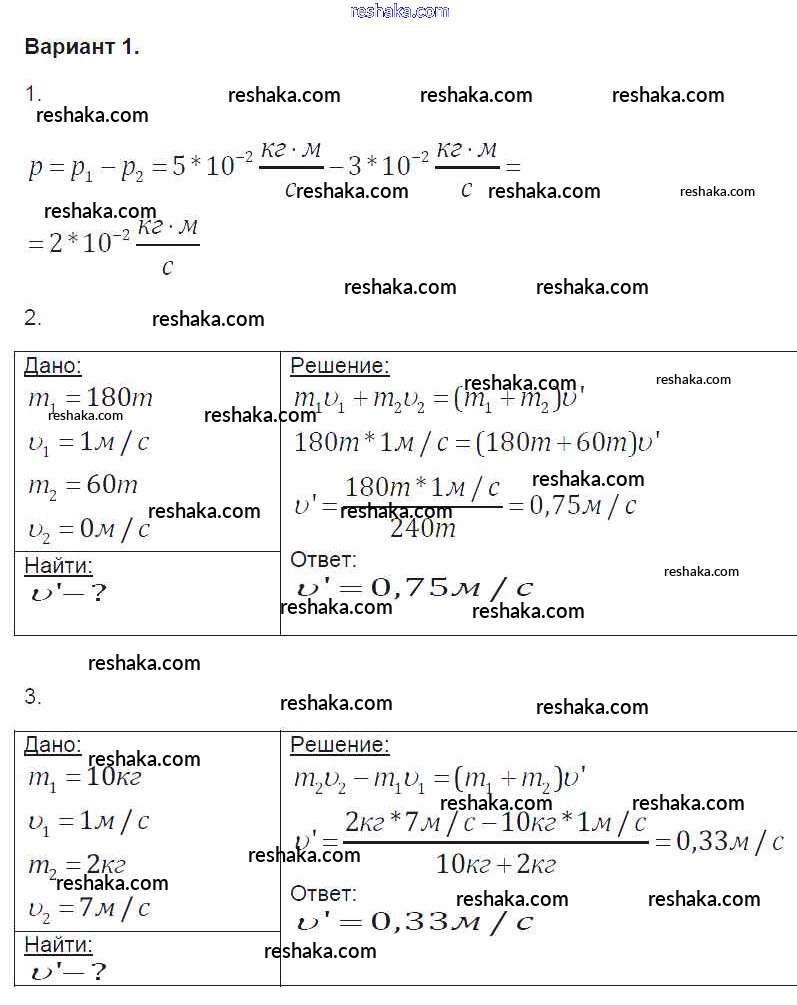 reshaka.com
Вариант 1.
1. reshaka.com reshaka.com reshaka.com
reshaka.com
p = p₁ − p₂ = 5*10⁻² кг·м/с − 3*10⁻² кг·м/с =
reshaka.com reshaka.com reshaka.com
reshaka.com
= 2*10⁻² кг·м/с
reshaka.com reshaka.com
2. reshaka.com
Дано:
m₁ = 180т
reshaka.com
υ₁ = 1м/с
reshaka.com
m₂ = 60т
reshaka.com
υ₂ = 0м/с
Найти:
υ'− ?
Решение:
reshaka.com reshaka.com
m₁υ₁ + m₂υ₂ = (m₁ + m₂)υ'
180т*1м/с = (180т+60т)υ'
reshaka.com
υ' = 180т*1м/с / 240т = 0,75м/с
reshaka.com
Ответ:
reshaka.com
υ' = 0,75м/с
reshaka.com reshaka.com
reshaka.com
3. reshaka.com reshaka.com
Дано:
reshaka.com
m₁ = 10кг
υ₁ = 1м/с
m₂ = 2кг
reshaka.com
υ₂ = 7м/с
Найти:
υ'− ?
Решение:
m₂υ₂ − m₁υ₁ = (m₁ + m₂)υ'
reshaka.com reshaka.com
υ' = 2кг*7м/с − 10кг*1м/с / 10кг + 2кг = 0,33м/с
reshaka.com
Ответ:
reshaka.com reshaka.com
υ' = 0,33м/с
reshaka.com